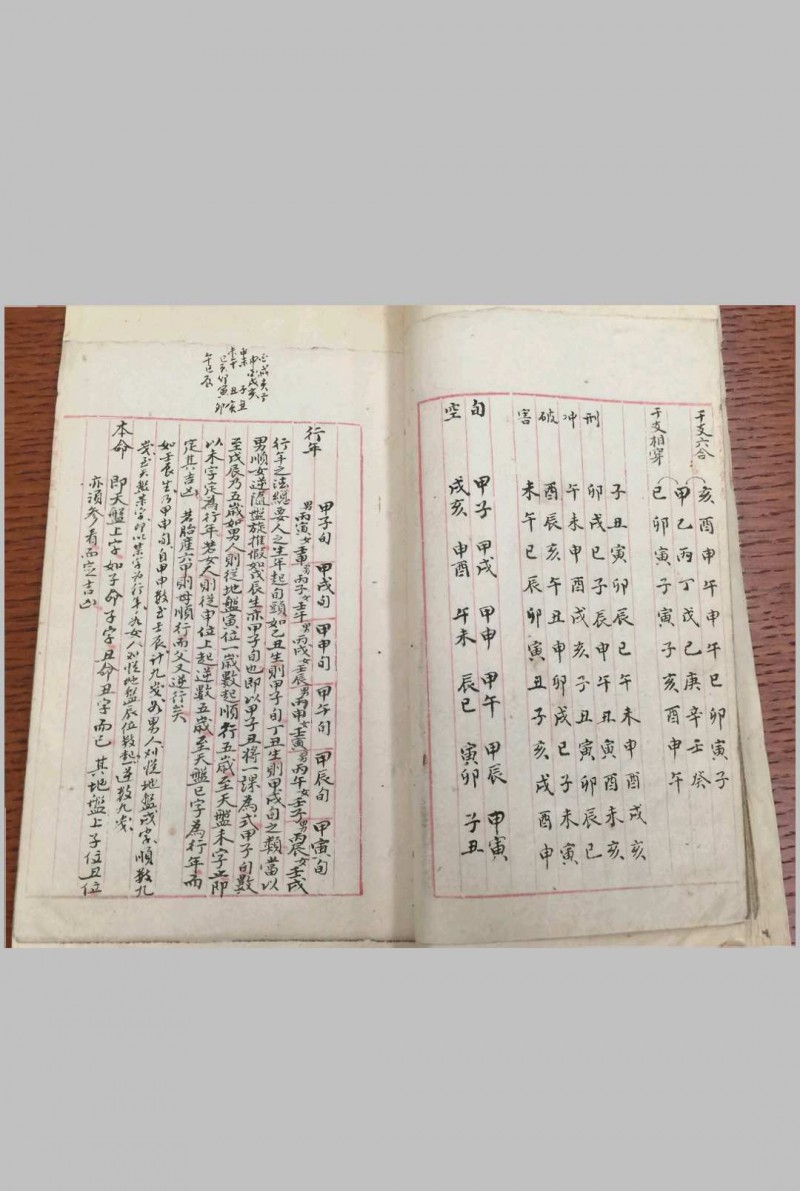 干支六合 亥酉申午申午巳卯寅子
甲乙丙丁戊己庚辛壬癸
干支相穿 巳卯寅子寅子亥酉申午
子丑寅卯辰巳午未申酉戌亥
刑 卯戌巳子辰申午丑寅酉未亥
冲 午未申酉戌亥子丑寅卯辰巳
破 酉辰亥午丑申卯戌巳子未寅
害 未午巳辰卯寅丑子亥戌酉申
旬 甲子 甲戌 甲申 甲午 甲辰 甲寅
空 戌亥 申酉 午未 辰巳 寅卯 子丑
甲子旬 甲戌旬 甲申旬 甲午旬 甲辰旬 甲寅旬
行年 男丙寅女壬申 男丙子女壬午 男丙戌女壬辰 男丙申女壬寅 男丙午女壬子 男丙辰女壬戌
行年之法總要人之生年起旬頭如乙丑生則甲子旬丁丑生則甲戌旬之類當以
男順女逆隨盤旋推假如戊辰生亦甲子旬也即以甲子丑將一課為式甲子旬數
至戊辰乃五歲如男人則從地盤寅位一歲數起順行五歲至天盤未字止即
以未字定為行年若女人則從申位上起逆數五歲至天盤巳字為行年而
定其吉凶 若胎產六甲則母順行而父又逆行矣
如壬辰生乃甲申旬自甲申數至壬辰計九歲如男人則從地盤戌字順數九
歲至天盤某字即以某字為行年如女人則從地盤辰位數起逆數九歲
本命 即天盤上字如子命子字丑命丑字而已 其地盤上子位丑位
亦須參看而定吉凶